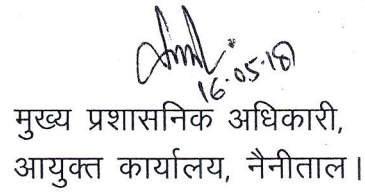 16.05.18
मुख्य प्रशासनिक अधिकारी,
आयुक्त कार्यालय, नैनीताल।